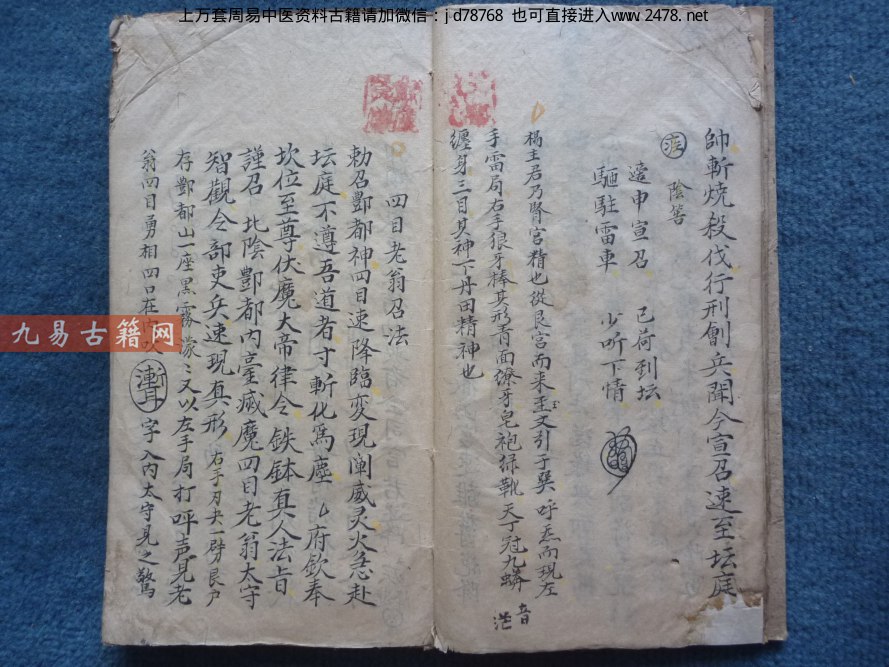 上万套周易中医资料古籍请加微信：jd78768 也可直接进入www.2478.net
帥斬燒殺伐行刑劊兵聞今宣召速至坛庭
陰筶
遠申宣召 已荷到坛
驅駐雷車 少听下情
楊主君乃腎宮精也從艮宮而来至文引于巽呼炁而現左
手雷局右手狼牙棒其形青面獠牙皂袍绿靴天丁冠九蟒
音
纏身三目其神下丹田精神也
四目老翁召法
勅召酆都神四目速降臨变現闡威灵火急赴
坛庭不遵吾道者寸斬化為塵 府欽奉
坎位至尊伏魔大帝律令鉄鉢真人法旨
謹召 北陰酆都內臺瘟魔四目老翁太守
智觀令部吏兵速現真形 右手刃夬一劈艮户
存酆都山一座黑雾濛〻又以左手局打呼声見老
翁四目勇相四口在内以 字入内太守見之驚
九易古籍网